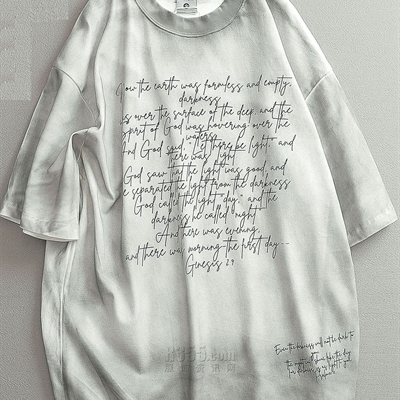 Now the earth was formless and empty,
darkness
was over the surface of the deep, and the
Spirit of God was hovering over the
waters.
And God said, "Let there be light," and
there was light
God saw that the light was good, and
he separated the light from the darkness
God called the light "day," and the
darkness he called "night"
And there was evening,
and there was morning-the first day...
Genesis
Even the darkness will not be dark to
the night will shine like the day,
for darkness is as light